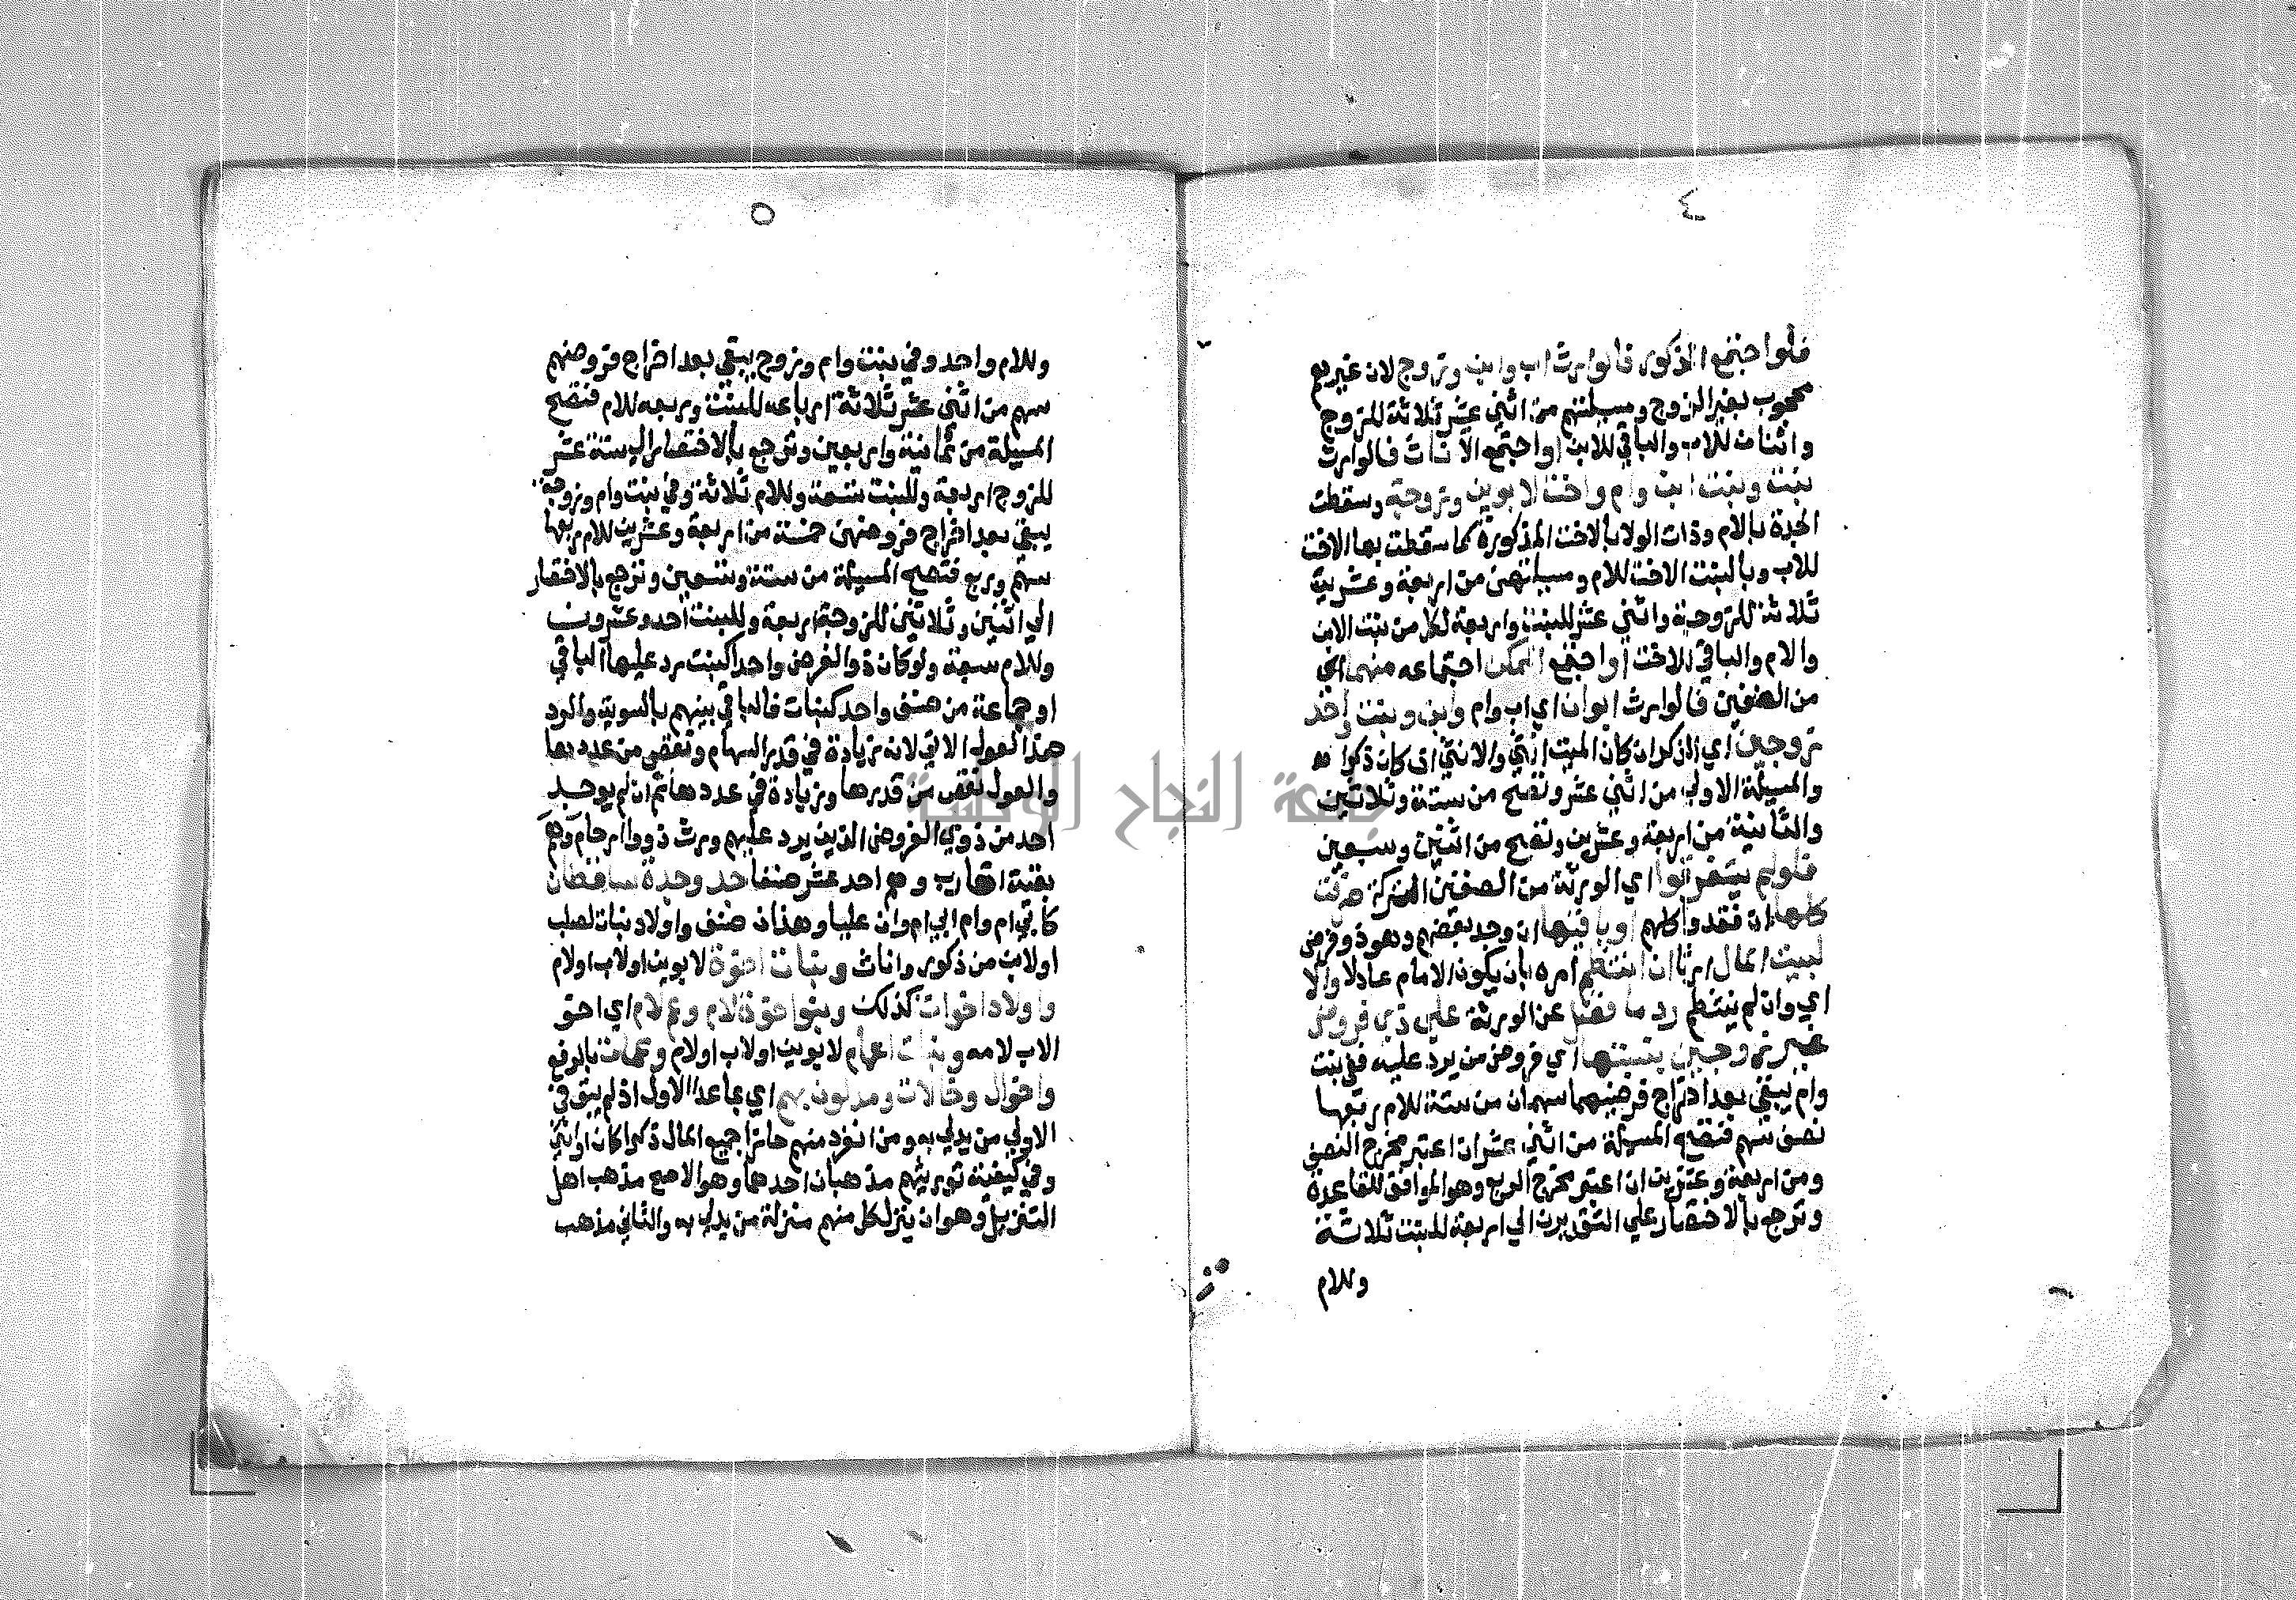 ٤
فلوا جتمع الذكور فالوارث اب وابن وزوج لان غيرهم
محجوب بغير الزوج ومسيلتهم من اثني عشر ثلاثة للزوج
واثنان للاب والباقي للابن اواجتمع الاناث فالوارث
بنت وبنت ابن وام واخت لابوين وزوجة وسقطت
الجدة بالام وذات الولا بالاخت المذكورة كما سقطت بها الاخت
للاب وبالبنت الاخت للام ومسيلتهن من اربعة وعشرين
ثلاثة للزوجة واثني عشر للبنت واربعة لكل من بنت الابن
والام والباقي للاخت اواجتمع الممكن اجتماعه منهما اي
من الصنفين فالوارث ابوان اي اب وام وابن وبنت واحد
زوجين اي الذكر ان كان الميت انثي والانثي ان كان ذكرا
والمسيلة الاولي من اثني عشر وتصح من ستة وثلاثين
والثانية من اربعة وعشرين وتصح من اثنين وسبعين
فلولم يستغرقوا اي الورثة من الصنفين التركة صرفت
كلها ان فقدوا كلهم اوباقيها ان وجد بعضهم وهو ذوفرض
لبيت المال ارثا ان انتظم امره بان يكون الامام عادلا والا
اي وان لم ينتظم رد ما فضل عن الورثة علي ذي فروض
غير زوجين بنسبتها اي فروض من يرد عليه ففي بنت
وام يبقي بعد اخراج فرضيهما سهمان من ستة للام ربعها
نصف سهم فتصح المسيلة من اثني عشر ان اعتبر مخرج النصف
ومن اربعة وعشرين ان اعتبر مخرج الربع وهو الموافق للقاعدة
وترجع بالاختصار علي التقديرين الي اربعة للبنت ثلاثة
وللام
٥
وللام واحد وفي بنت وام وزوج يبقي بعد اخراج فروضهم
سهم من اثني عشر ثلاثة ارباعه للبنت وربعه للام فتصح
المسيلة من ثمانية واربعين وترجع بالاختصار الي ستة عشر
للزوج اربعة وللبنت تسعة وللام ثلاثة وفي بنت وام وزوجة
يبقي بعد اخراج فروضهن خمسة من اربعة وعشرين للام ربعها
سهم وربع فتصح المسيلة من ستة وتسعين وترجع بالاختصار
الي اثنين وثلاثين للزوجة اربعة وللبنت احد وعشرون
وللام سبعة ولوكان ذوالفرض واحدا كبنت رد عليها الباقي
اوجماعة من صنف واحد كبنات فالباقي بينهم بالسوية والرد
ضد العول الاتي لانه زيادة في قدر السهام ونقص من عددها
والعول نقص من قدرها وزيادة في عددها ثم ان لم يوجد
احد من ذوي الفروض الذين يرد عليهم ورث ذووا ارحام وهم
بقية اقارب وهم احد عشر صنفا جد وجدة ساقطان
كابي ام وام ابي ام وان عليا وهذان صنف واولاد بنات لصلب
اولابن من ذكور واناث وبنات اخوة لابوين اولاب اولام
واولاد اخوات كذلك وبنوا خوة لام وعم لام اي اخو
الاب لامه وبنات اعمام لابوين اولاب اولام وعمات بالرفع
واخوال وخالات ومدلون بهم اي بما عدا الاول اذ لم يبق في
الاولي من يدلي به ومن انفرد منهم حاز جميع المال ذكرا كان اوانثي
وفي كيفية توريثهم مذهبان احدهما وهو الاصح مذهب اهل
التنزيل وهوان ينزل كل منهم منزلة من يدلي به والثاني مذهب
جامعة النجاح الوطنية